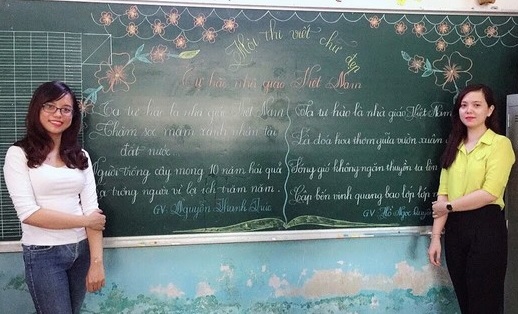 Hội thi viết chữ đẹp
Tự hào nhà giáo Việt Nam
Ta tự hào là nhà giáo Việt Nam
Chăm sóc mầm xanh nhân tài
đất nước.
Người trồng cây mong 10 năm hái quả
Ta trồng người vì lợi ích trăm năm.
GV Nguyễn Thanh
Ta tự hào là nhà giáo Việt Nam
Là đoá hoa thơm giữa vườn xuân
Sóng gió không ngăn thuyền ta
Cập bến vinh quang bao lớp lớp
GV Hồ Ngọc